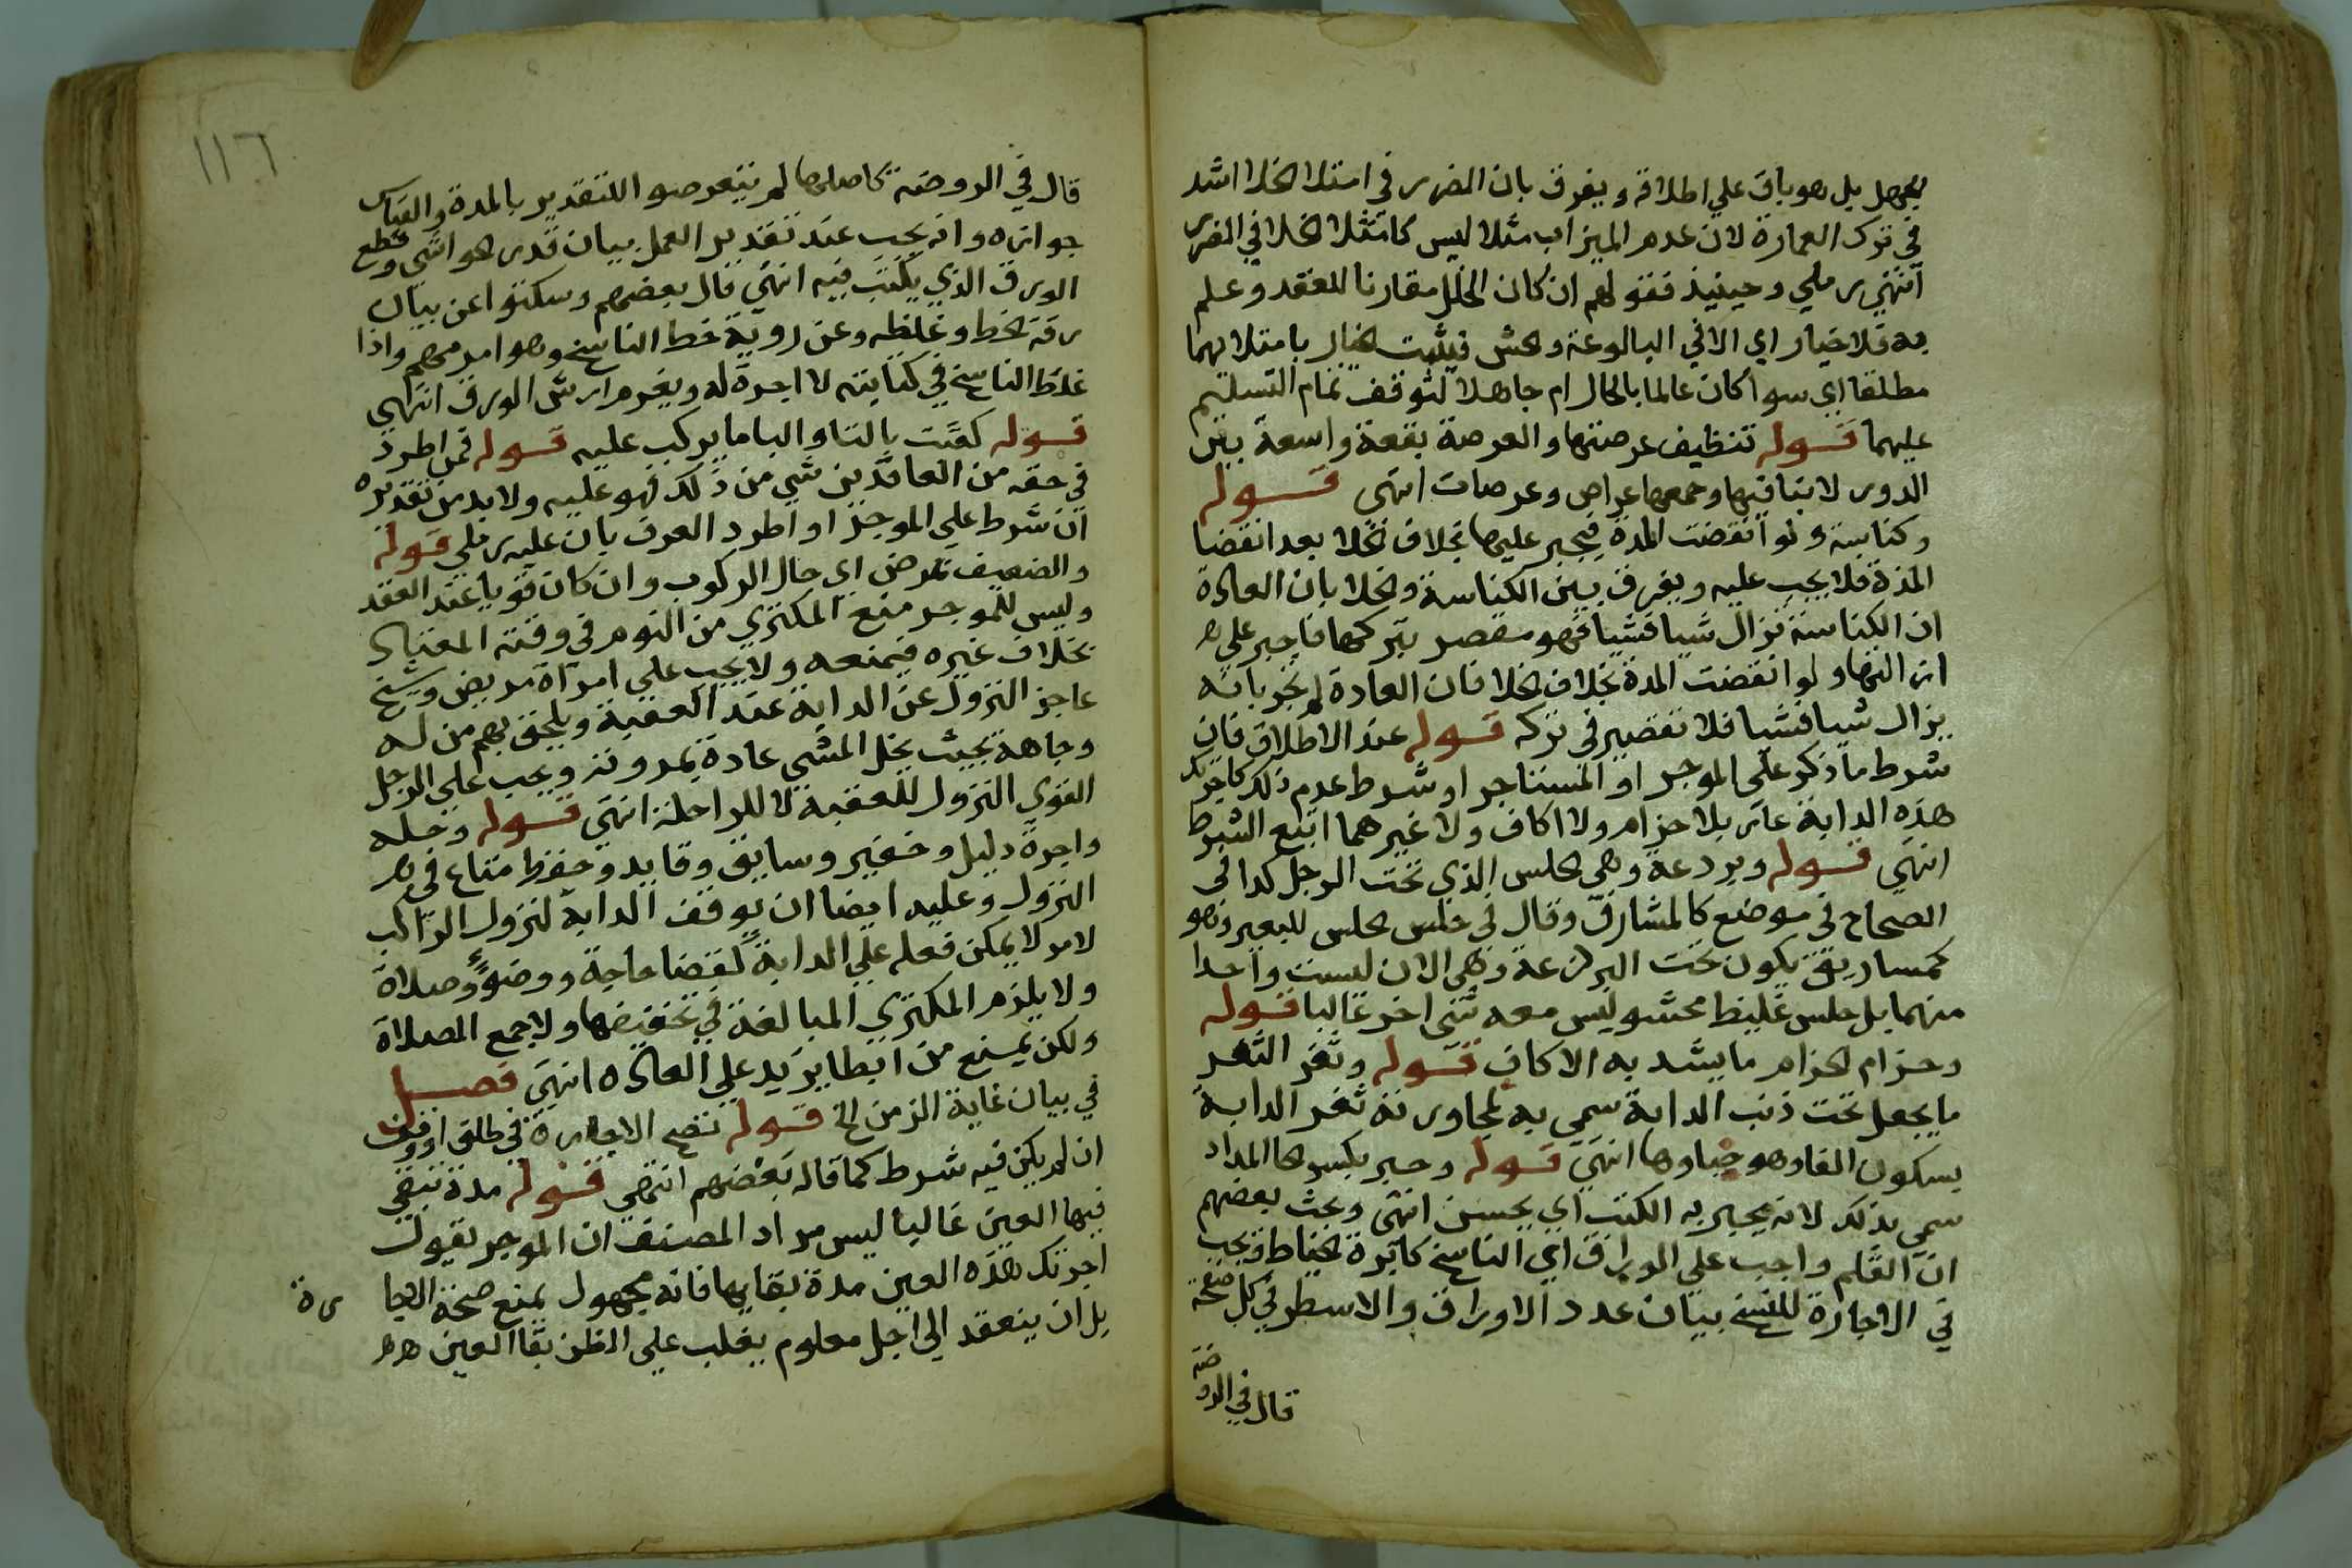 بجهل بل هو باق علي اطلاقه ويفرق بان الضرر في امتلا الخلا اشد
في ترك العمارة لان عدم الميزاب مثلا ليس كامتلا الخلا في الضرر
انتهي رملي وحينيذ فقولهم ان كان الخلل مقارنا للعقد وعلم
به فلا خيار اي الا في البالوعة والحش فيثبت الخيار بامتلايهما
مطلقا اي سوا كان عالما بالحال ام جاهلا لتوقف تمام التسليم
عليهما قوله تنظيف عرصتها والعرصة بقعة واسعة بين
الدور لا بنا فيها وجمعها عراص وعرصات انتهي قوله
وكناسة ولو انقضت المدة فيجبر عليها بخلاف الخلا بعد انقضا
المدة فلا يجب عليه ويفرق بين الكناسة والخلا بان العادة
ان الكناسة تزال شيا فشيا فهو مقصر بتركها فاجبر علي
ازالتها ولو انقضت المدة بخلاف الخلا فان العادة لم تجر بانه
يزال شيا فشيا فلا تقصير في تركه قوله عند الاطلاق فان
شرط ما ذكر علي الموجر او المستاجر او شرط عدم ذلك كاجرتك
هذه الدابة عاريا بلا حزام ولا اكاف ولا غيرهما اتبع الشرط
انتهي قوله وبردعة وهي الحلس الذي تحت الرحل كذا في
الصحاح في موضع كالمشارق وقال في حلس الحلس للبعير وهو
كمسا رقيق يكون تحت البرذعة وهي الان ليست واحدا
منهما بل حلس غليظ محشو ليس معه شي اخر غالبا قوله
وحزام الحزام ما يشد به الاكاف قوله وثفر الثفر
ما يجعل تحت ذنب الدابة سمي به لمجاورته ثفر الدابة
بسكون الفا وهو حياوها انتهي قوله وحبر بكسر الحا المداد
سمي بذلك لانه يحبر به الكتب اي يحسن انتهي وبحث بعضهم
ان القلم واجب علي الوراق اي الناسخ كابرة الخياط ويجب
في الاجارة للنسخ بيان عدد الاوراق والاسطر في كل صفحة
قال في الروضة
١١٦
قال في الروضة كاصلها لم يتعرضوا للتقدير بالمدة والقياس
جوازه وانه يجب عند تقدير العمل بيان قدر الحواشي وقطع
الورق الذي يكتب فيه انتهي قال بعضهم وسكتوا عن بيان
رقة الخط وغلظه وعن روية خط الناسخ وهو امر مهم واذا
غلط الناسخ في كتابته لا اجرة له ويغرم ارش الورق انتهي
قوله كقتب بالتا والبا ما يركب عليه قوله فمن اطرد
في حقه من العاقدين شي من ذلك فهو عليه ولا بد من تقديره
ان شرط علي الموجر او اطرد العرف بان عليه رملي قوله
والضعيف بمرض اي حال الركوب وان كان قويا عند العقد
وليس للموجر منع المكتري من النوم في وقته المعتاد
بخلاف غيره فيمنعه ولا يجب علي امراة مريض وشيخ
عاجز النزول عن الدابة عند العقبة ويلحق بهم من له
وجاهة بحيث يخل المشي عادة بمروته ويجب علي الرجل
القوي النزول للعقبة لا للراحلة انتهي قوله وحمله
واجرة دليل وخفير وسايق وقايد وحفظ متاع في
النزول وعليه ايضا ان يوقف الدابة لنزول الراكب
لامر لا يمكن فعله علي الدابة كقضا حاجة ووضوء وصلاة
ولا يلزم المكتري المبالغة في تخفيفها ولا جمع الصلاة
ولكن يمنع من ابطا يزيد علي العادة انتهي فصل
في بيان غاية الزمن الخ قوله تصح الاجارة في طلق او وقف
ان لم يكن فيه شرط كما قاله بعضهم انتهي قوله مدة تبقي
فيها العين غالبا ليس مراد المصنف ان الموجر يقول
اجرتك هذه العين مدة بقايها فانه مجهول يمنع صحة الاجا رة
بل ان ينعقد الي اجل معلوم يغلب علي الظن بقا العين